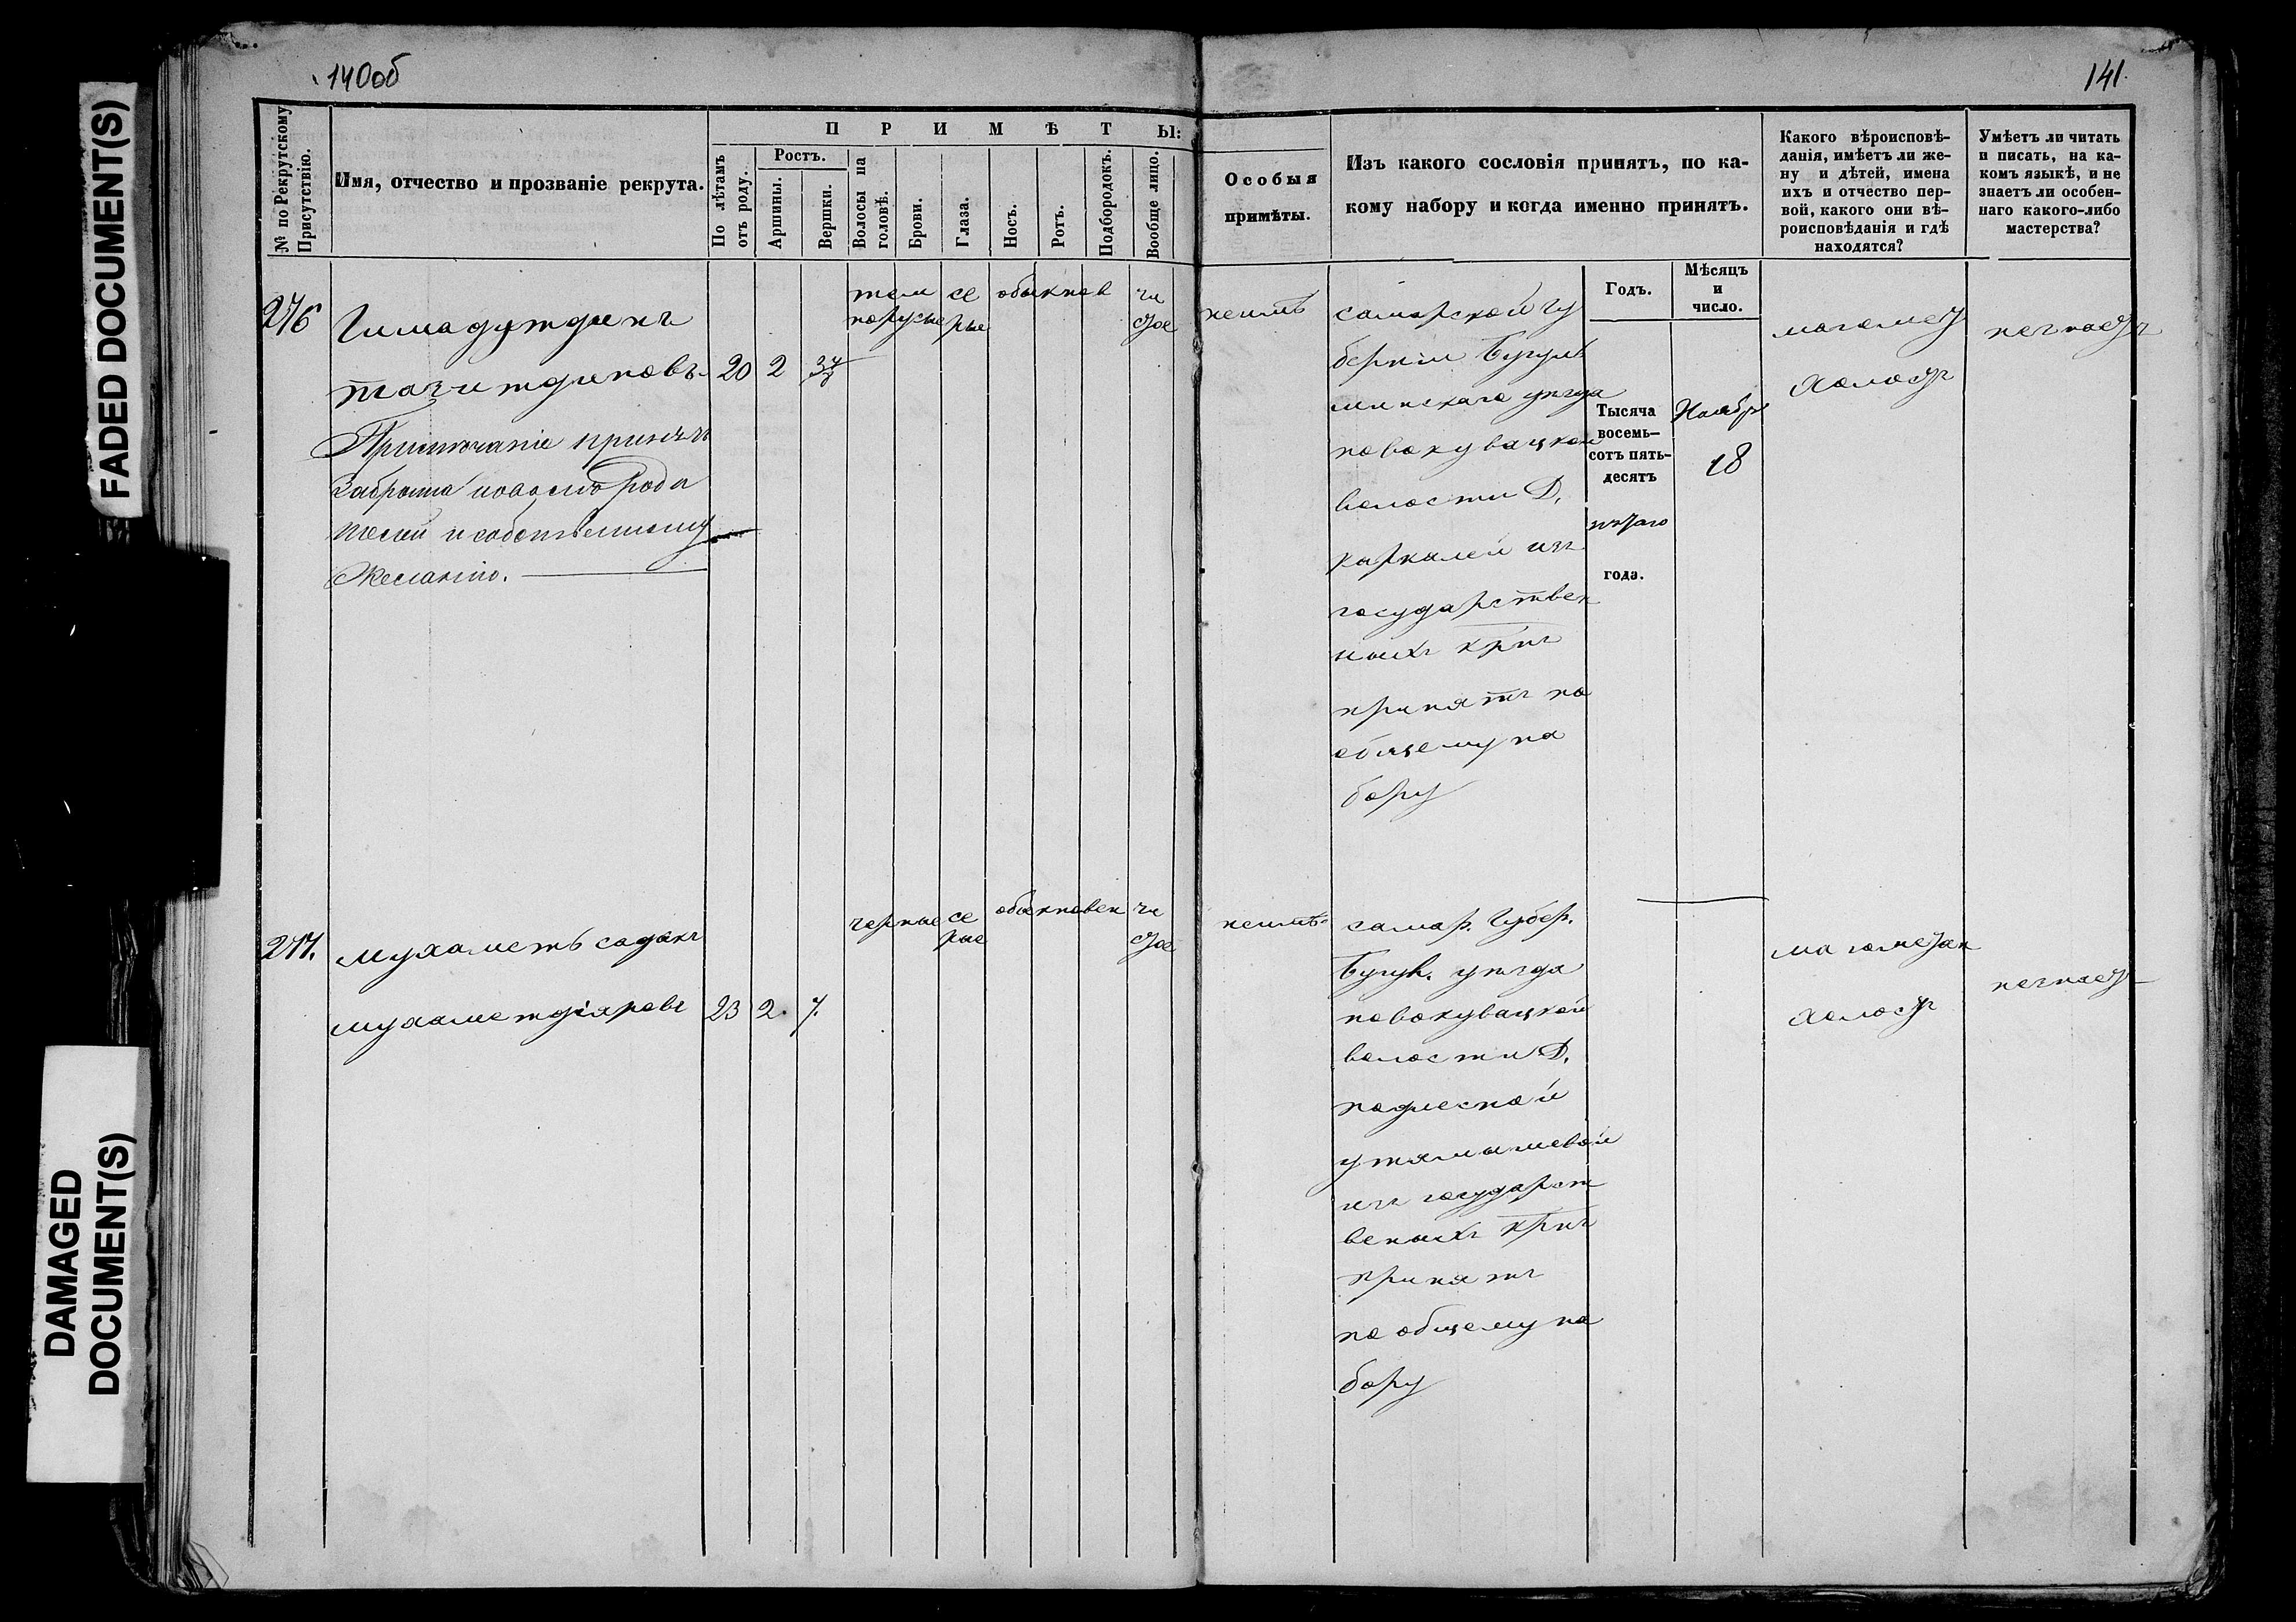 140об
141
FADED DOCUMENT(S)
DAMAGED
DOCUMENT(S)
№ по Рекрутскому
Присутствію.
Имя, отчество и прозваніе рекрута.
ПРИМѢТЫ:
По лѣтамъ
отъ роду.
Ростъ.
Аршины.
Вершки.
Волосы на
головѣ.
Брови.
Глаза.
Носъ.
Ротъ.
Подбородокъ.
Вообще лицо.
Особыя
примѣты.
Изъ какого сословія принятъ, по ка-
кому набору и когда именно принятъ.
Какого вѣроисповѣ-
данія, имѣетъ ли же-
ну и дѣтей, имена
ихъ и отчество пер-
вой, какого они вѣ-
роисповѣданія и гдѣ
находятся?
Умѣетъ ли читать
и писать, на ка-
комъ языкѣ, и не
знаетъ ли особен-
наго какого-либо
мастерства?
276
Гимадутдинъ
тазитдиновъ
20 2
Примѣчаніе принятъ
за брата по
и собственному
желанію.
тем
норусые
се
рые
обыкнов
чи
стое
неимѣ
самарской гу
берніи Бугуль
минскаго уезда
новокувацкой
волости Д.
каркалей изъ
государствен
ныхъ крнъ
принятъ по
общему на
бору
Годъ.
Мѣсяцъ
и
число.
Тысяча
восемь-
сотъ пять-
десятъ
пятаго
года.
Ноября
18
магомет
холостъ
незнаетъ
277.
мухаметь садыкъ
мухаметдіяровъ
23 2. 7.
черные
се
рые
обыкновен
чи
стое
неимѣ
самар. Губер.
Бугул. уезда
новокувацкой
волости Д.
подлесной
утямышевой
изъ государст
веныхъ крнъ
принятъ
по общему на
бору
магометан
холостъ
незнает